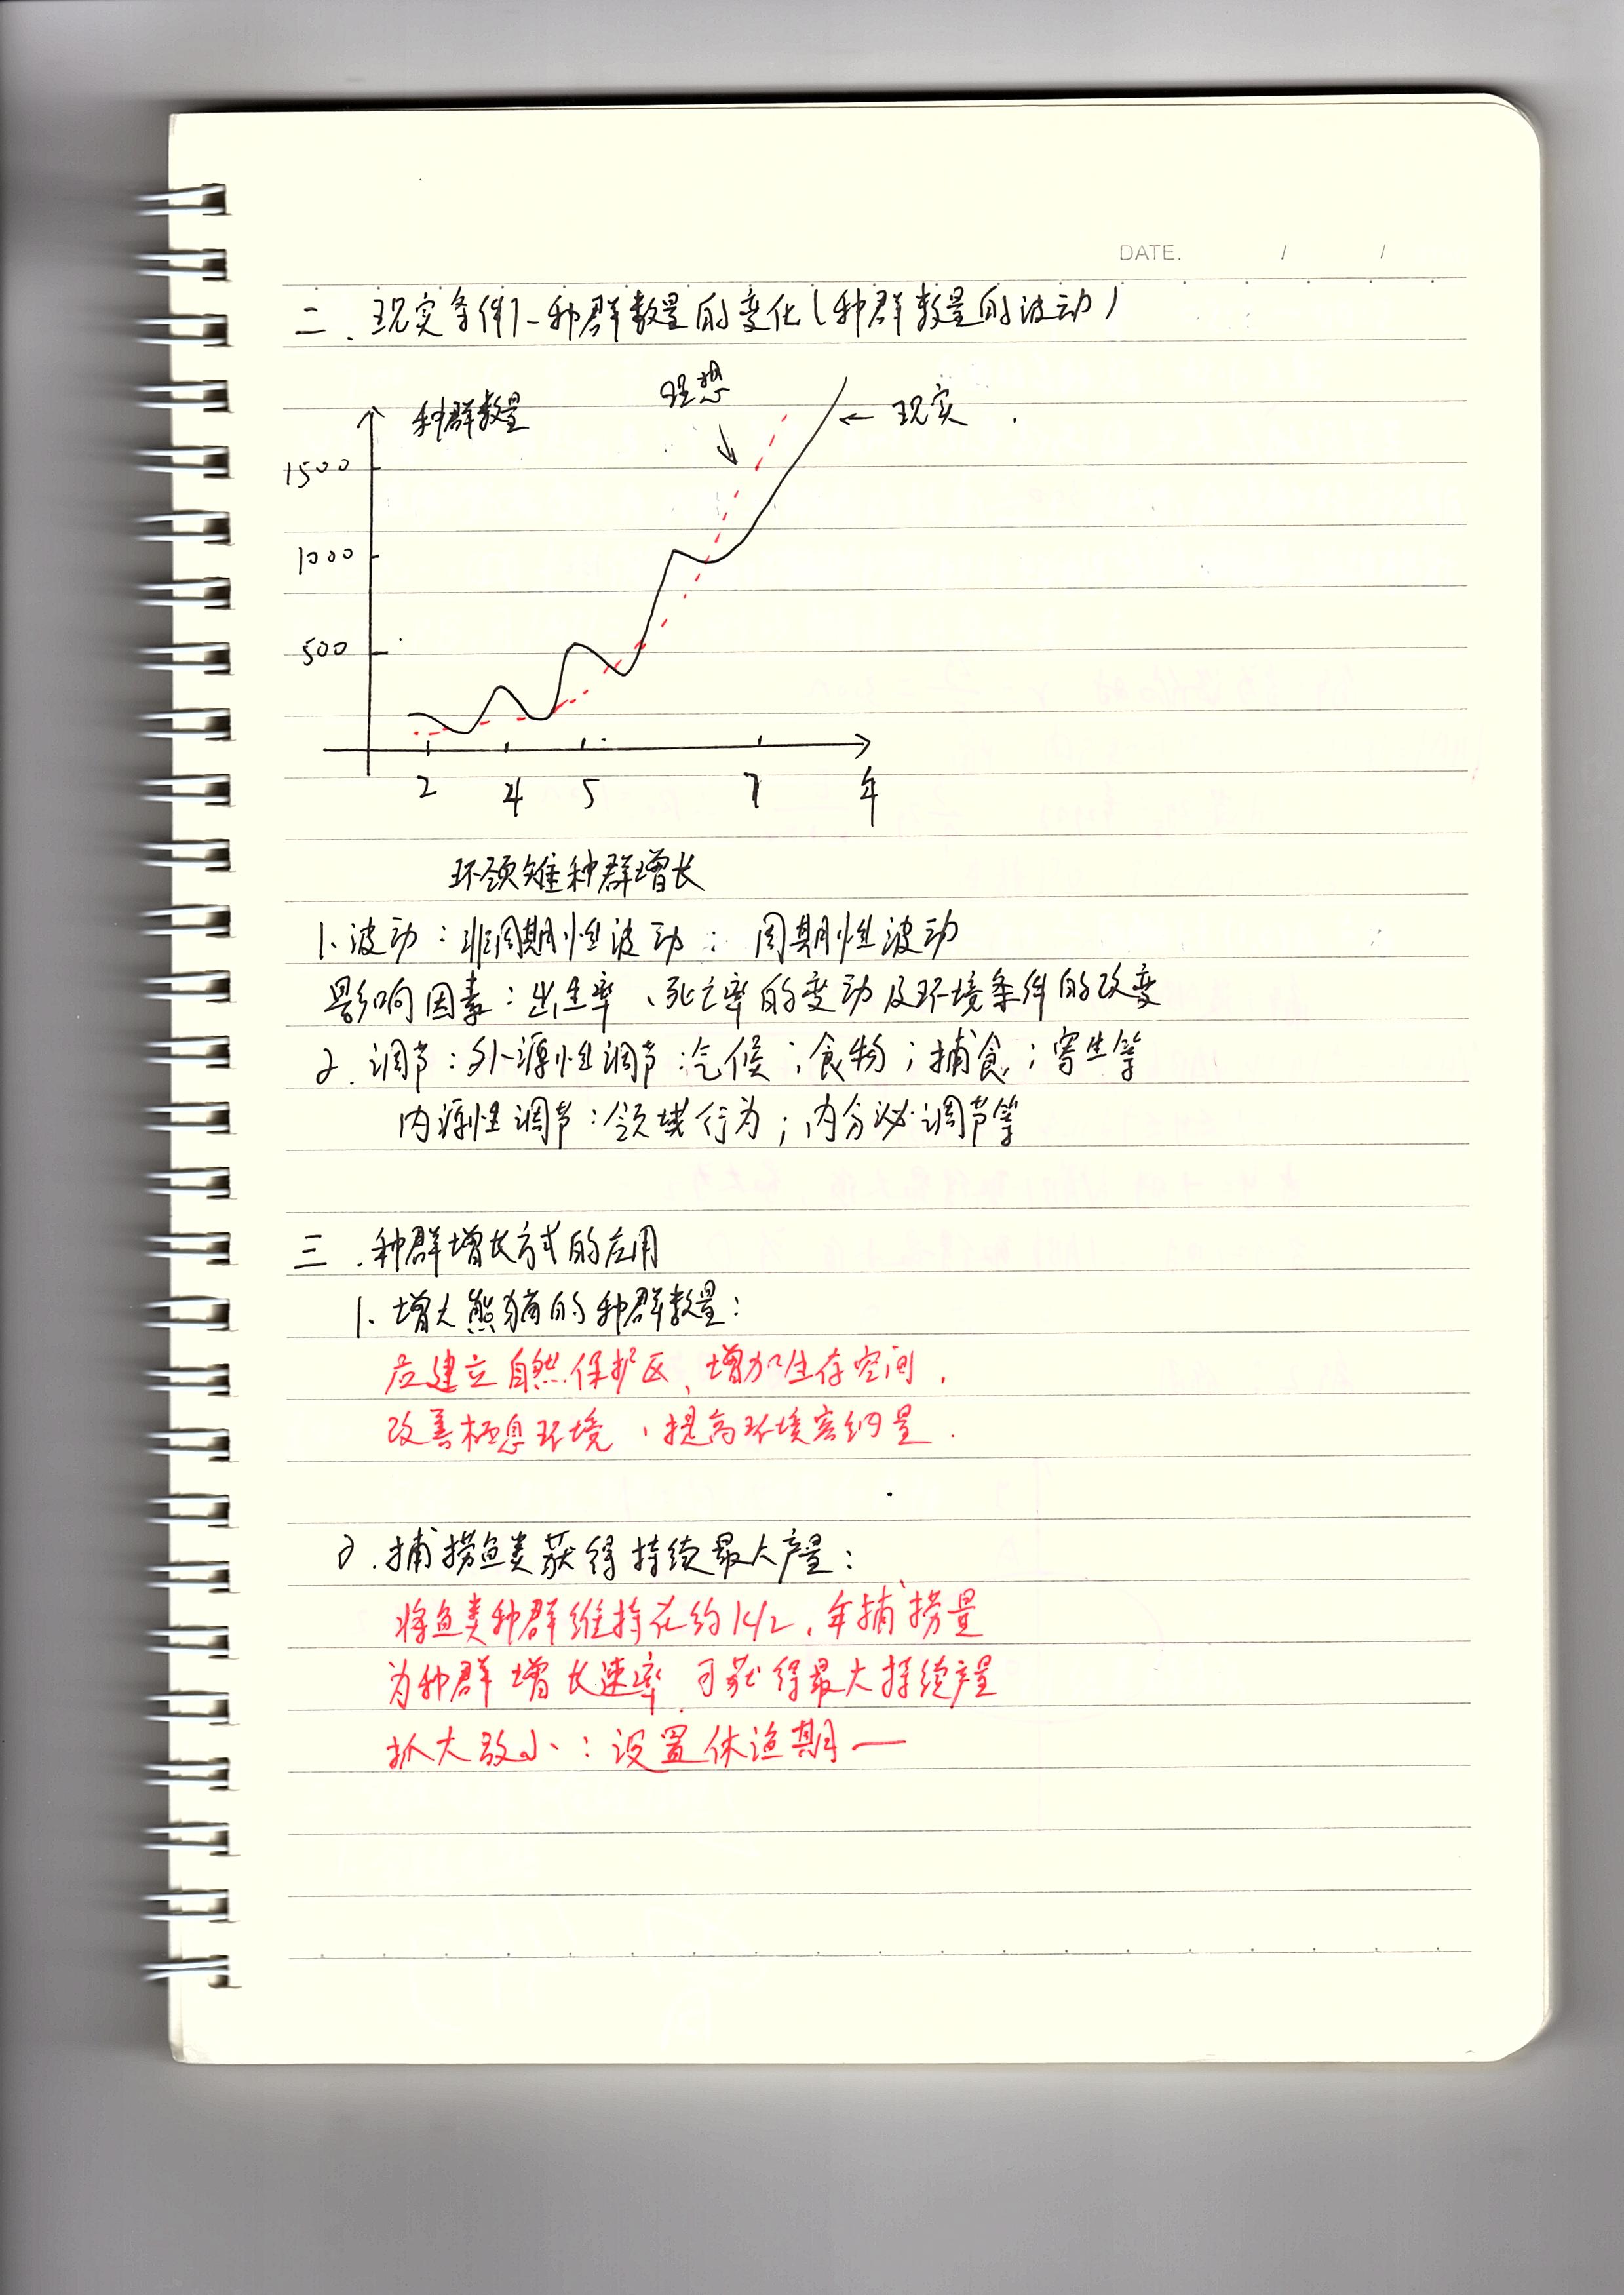 DATE. / /
二. 现实条件下种群数量的变化(种群数量的波动)
种群数量
理想
← 现实
1500
1000
500
2 4 5 7 年
环颈雉种群增长
1. 波动:非周期性波动; 周期性波动
影响因素:出生率、死亡率的变动及环境条件的改变
2. 调节:外源性调节:气候;食物;捕食;寄生等
内源性调节:领域行为;内分泌调节等
三.种群增长方式的应用
1. 增大熊猫的种群数量:
应建立自然保护区,增加生存空间.
改善栖息环境,提高环境容纳量.
2.捕捞鱼类获得持续最大产量:
将鱼类种群维持在约K/2,年捕捞量
为种群增长速率,可获得最大持续产量
抓大放小:设置休渔期—